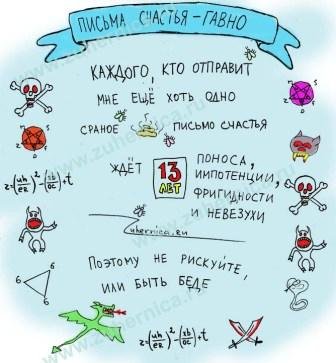 ПИСЬМА СЧАСТЬЯ - ГАВНО
КАЖДОГО, КТО ОТПРАВИТ
МНЕ ЕЩЁ ХОТЬ ОДНО
СРАНОЕ ПИСЬМО СЧАСТЬЯ
ЖДЁТ 13 ЛЕТ ПОНОСА,
ИМПОТЕНЦИИ,
ФРИГИДНОСТИ
И НЕВЕЗУХИ
Zuhernica.ru
ПОЭТОМУ НЕ РИСКУЙТЕ,
ИЛИ БЫТЬ БЕДЕ
6
6 6
www.zuhernica.ru